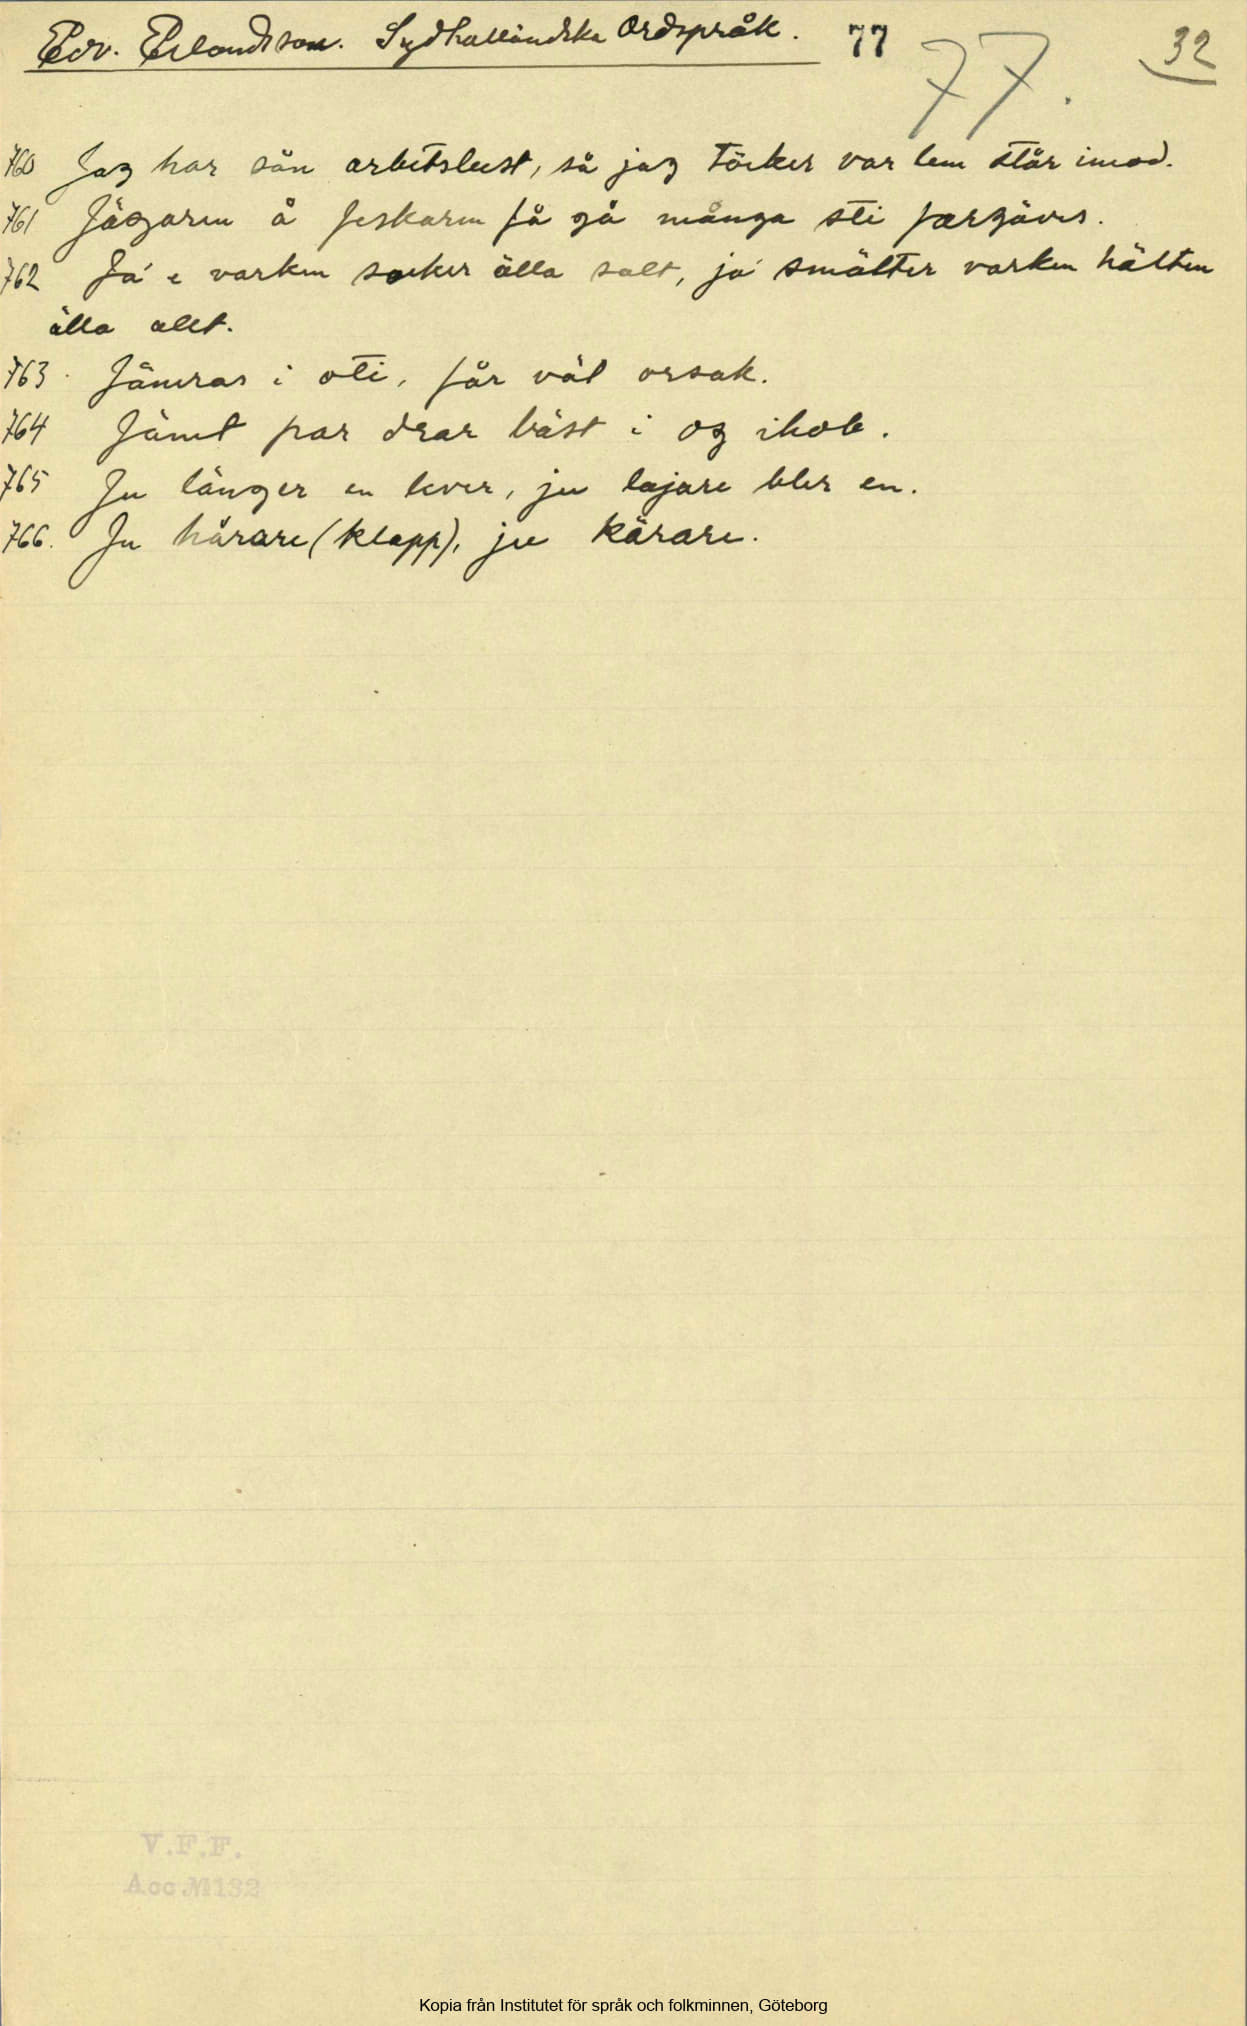 Edv. Erlandsson. Sydhalländska Ordspråk. 77 77. 32
760 Jag har sån arbetslust, så jag töcker var lem står imod.
761 Jägaren å feskaren få gå många sti færgäves.
762 Ja' e varken socker älla salt, ja' smälter varken hälten
älla allt.
763. Jämras i oti, får väl orsak.
764 Jämt par drar bäst i og ihob.
765 Ju länger en lever, ju lajare bler en.
766. Ju hårare (klapp), ju kärare.
V.F.F.
Acc.M132
Kopia från Institutet för språk och folkminnen, Göteborg